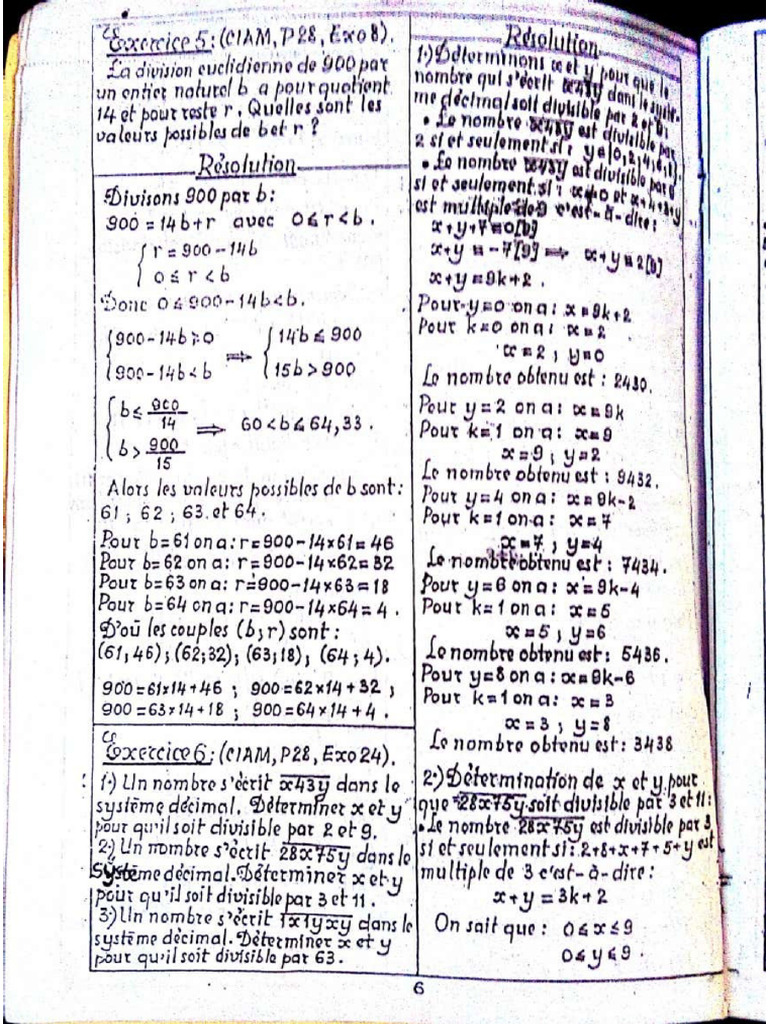 Exercice 5 : (CIAM, P28, Exo 8).
La division euclidienne de 900 par
un entier naturel b a pour quotient
14 et pour reste r. Quelles sont les
valeurs possibles de b et r ?
Résolution
Divisons 900 par b :
900 = 14b + r avec 0 ≤ r < b.
{ r = 900 - 14b
{ 0 ≤ r < b
Donc 0 ≤ 900 - 14b < b.
{ 900 - 14b ≥ 0 ⟹ { 14b ≤ 900
{ 900 - 14b < b { 15b > 900
{ b ≤ 900/14 ⟹ 60 < b ≤ 64,33.
{ b > 900/15
Alors les valeurs possibles de b sont :
61 ; 62 ; 63 et 64.
Pour b = 61 on a : r = 900 - 14×61 = 46
Pour b = 62 on a : r = 900 - 14×62 = 32
Pour b = 63 on a : r = 900 - 14×63 = 18
Pour b = 64 on a : r = 900 - 14×64 = 4.
D'où les couples (b ; r) sont :
(61 ; 46) ; (62 ; 32) ; (63 ; 18) ; (64 ; 4).
900 = 61×14 + 46 ; 900 = 62×14 + 32 ;
900 = 63×14 + 18 ; 900 = 64×14 + 4.
Exercice 6 : (CIAM, P28, Exo 24).
1.) Un nombre s'écrit x43y dans le
système décimal. Déterminer x et y
pour qu'il soit divisible par 2 et 9.
2.) Un nombre s'écrit 28x75y dans le
Système décimal. Déterminer x et y
pour qu'il soit divisible par 3 et 11.
3.) Un nombre s'écrit 1x1yxy dans le
système décimal. Déterminer x et y
pour qu'il soit divisible par 63.
Résolution
1.) Déterminons x et y pour que le
nombre qui s'écrit x43y dans le systè-
me décimal soit divisible par 2 et 9 :
• Le nombre x43y est divisible par
2 si et seulement si : y = {0, 2, 4, 6, 8}.
• Le nombre x43y est divisible par 9
si et seulement si : x ≠ 0 et x+4+3+y
est multiple de 9 c'est-à-dire :
x + y + 7 ≡ 0[9]
x + y ≡ -7[9] ⟹ x + y ≡ 2[9]
x + y = 9k + 2.
Pour y = 0 on a : x = 9k + 2
Pour k = 0 on a : x = 2
x = 2 ; y = 0
Le nombre obtenu est : 2430.
Pour y = 2 on a : x = 9k
Pour k = 1 on a : x = 9
x = 9 ; y = 2
Le nombre obtenu est : 9432.
Pour y = 4 on a : x = 9k - 2
Pour k = 1 on a : x = 7
x = 7 ; y = 4
Le nombre obtenu est : 7434.
Pour y = 6 on a : x = 9k - 4
Pour k = 1 on a : x = 5
x = 5 ; y = 6
Le nombre obtenu est : 5436.
Pour y = 8 on a : x = 9k - 6
Pour k = 1 on a : x = 3
x = 3 ; y = 8
Le nombre obtenu est : 3438
2.) Détermination de x et y pour
que 28x75y soit divisible par 3 et 11 :
• Le nombre 28x75y est divisible par 3
si et seulement si : 2+8+x+7+5+y est
multiple de 3 c'est-à-dire :
x + y = 3k + 2
On sait que : 0 ≤ x ≤ 9
0 ≤ y ≤ 9.
6